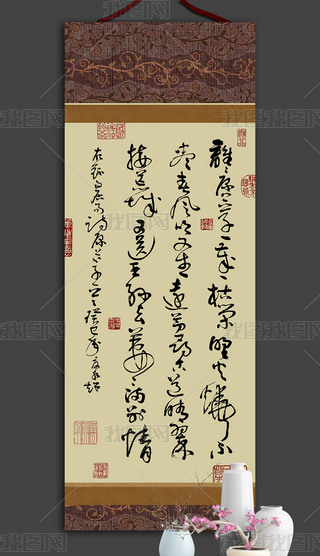 離離原上草一歲一枯榮野火燒不
盡春風吹又生遠芳侵古道晴翠
接荒城又送王孫去萋萋滿別情
我图网